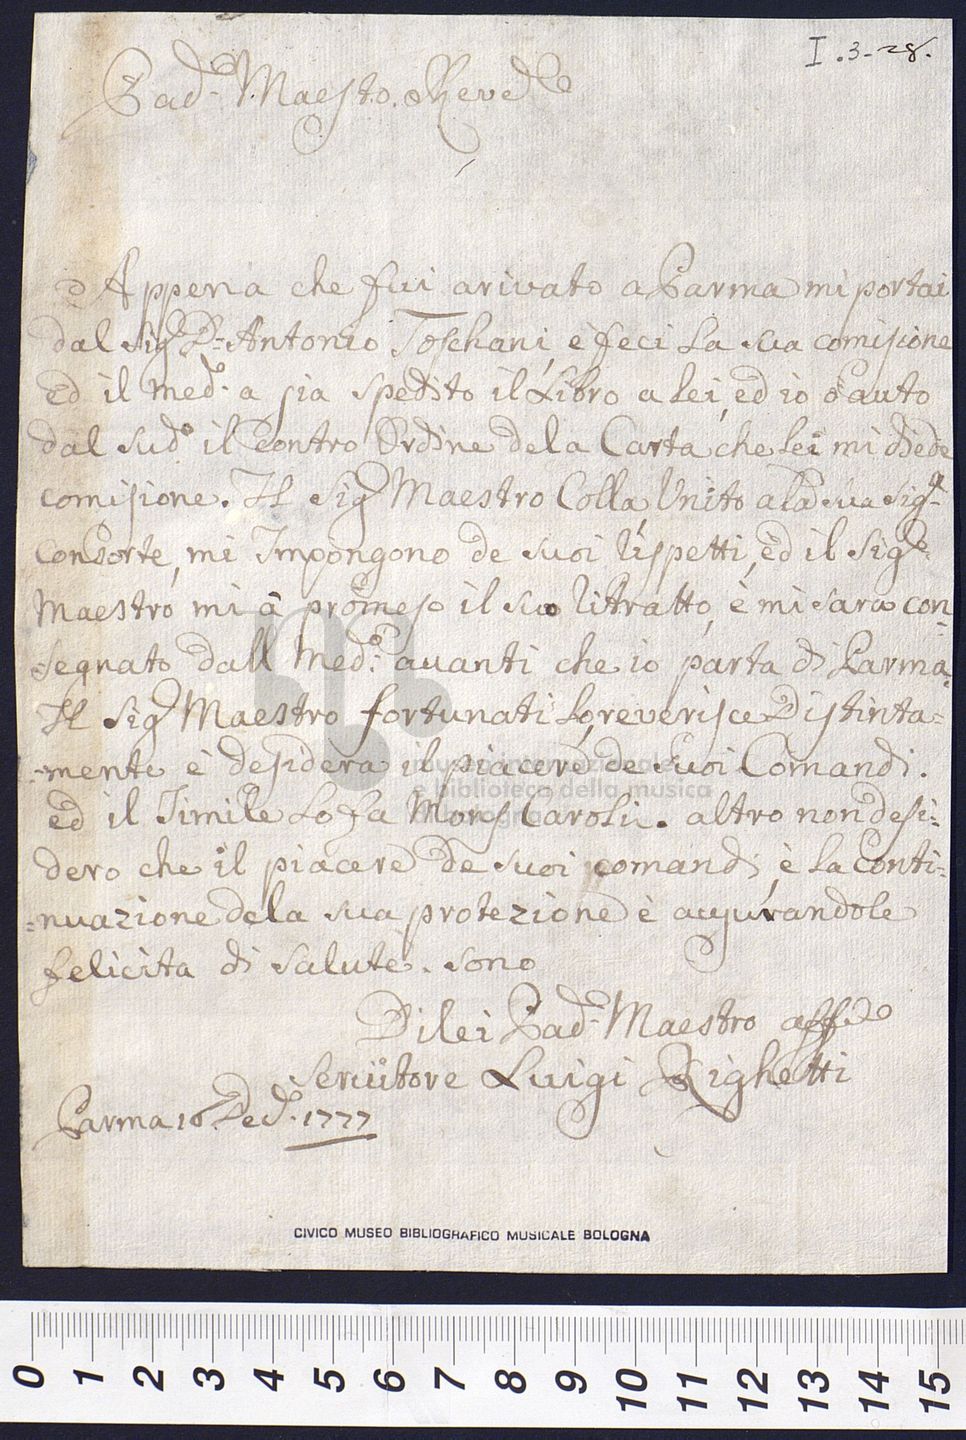 I.3-28.
Pad.e Maestro Revedo
Appena che fui arivato a Parma mi portai
dal Sig.r D.n Antonio Toschani, e feci La sua comisione
Ed il med.o a gia spedito il Libro a Lei, ed io ò auto
dal sud.o il Contro Ordine dela Carta, che Lei mi diede
comisione. Il Sig.r Maestro Colla Unito ala sua Sig.a
Consorte, mi Impongono de suoi rispetti, ed il Sig.r
Maestro mi à promeso il suo ritratto, e mi sara con=
segnato dall Med.o avanti che io parta di Parma.
Il Sig.r Maestro Fortunati Lo reverisce Distinta=
=mente e desidera il piacere de Suoi Comandi.
ed il Simile Lo Fa Mons. Caroli. altro non desi=
dero che il piacere de suoi comandi, e La Conti=
=nuazione dela sua protezione e augurandole
felicita di Salute. sono
Di lei Pad.e Maestro affmo
Servitore Luigi Righetti
Parma 16 Dec. 1777
CIVICO MUSEO BIBLIOGRAFICO MUSICALE BOLOGNA
museo internazionale
e biblioteca della musica
di bologna
0 1 2 3 4 5 6 7 8 9 10 11 12 13 14 15